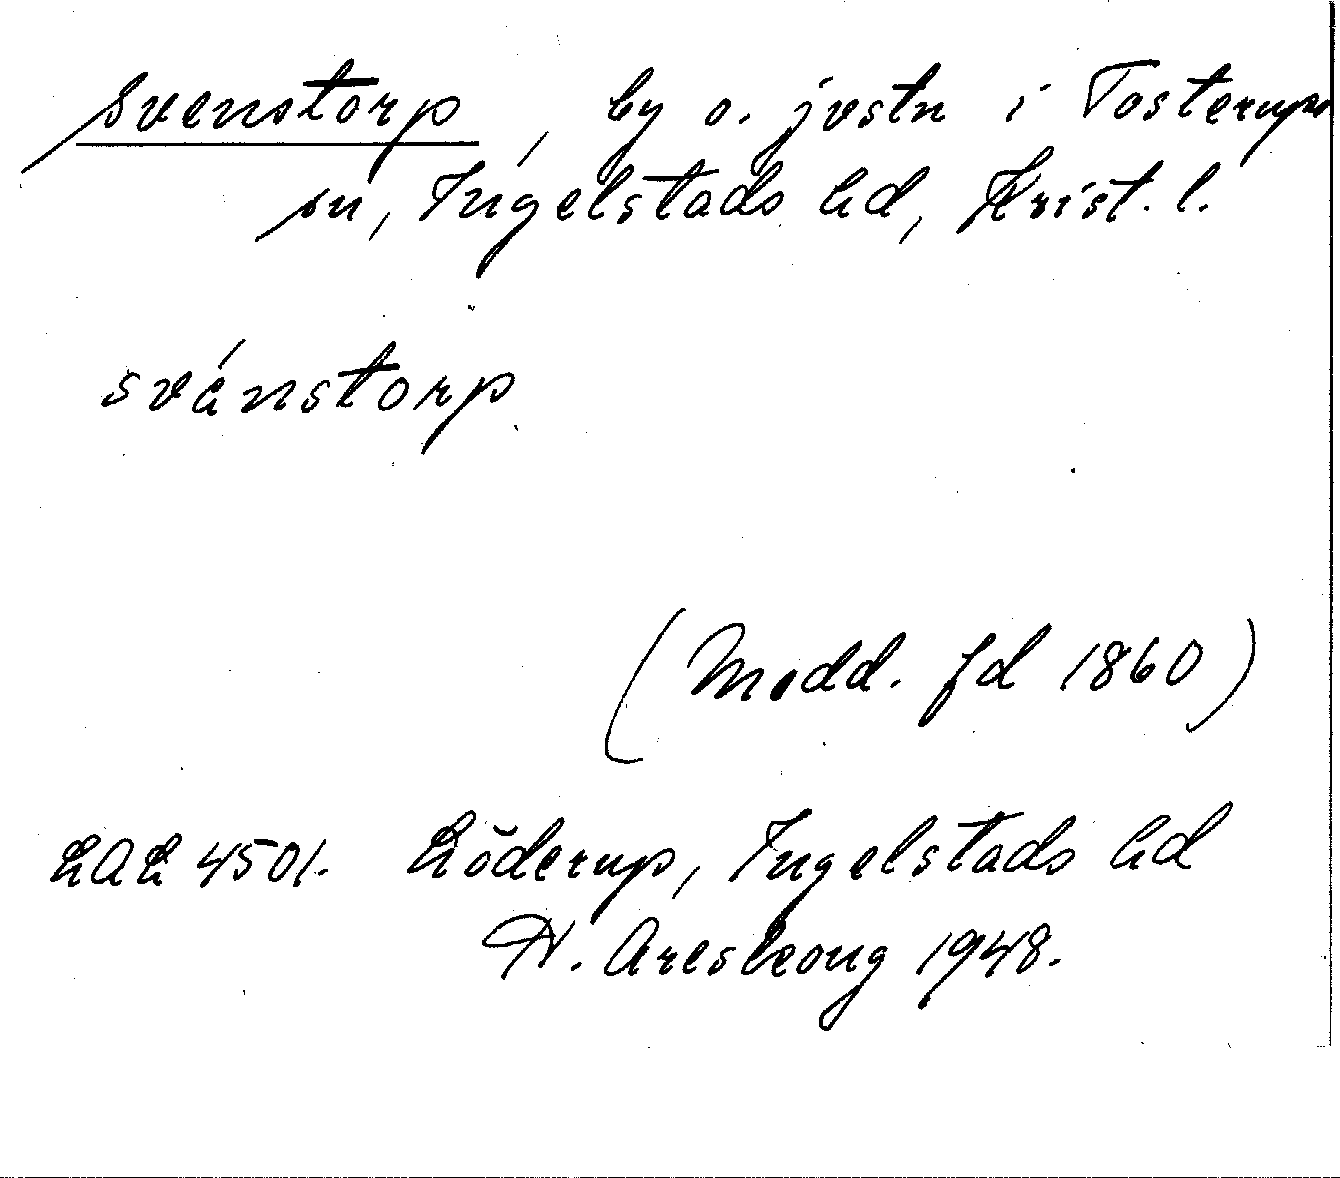 Svenstorp, by o. jvstn i Tosterups
sn, Ingelstads hd, Krist. l.
svánstorp
(Medd. fd 1860)
LAL 4501. Löderup, Ingelstads hd
N. Areskoug 1948.